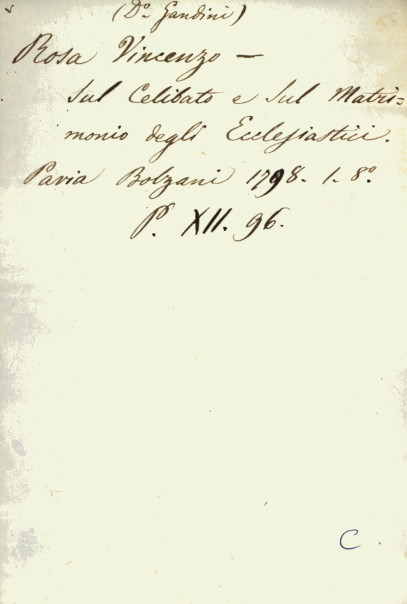 (Do. Gandini)
Rosa Vincenzo —
Sul Celibato e sul Matri=
monio degli Ecclesiastici.
Pavia Bolzani 1798. 1. 8o.
P. XII. 96.
C.